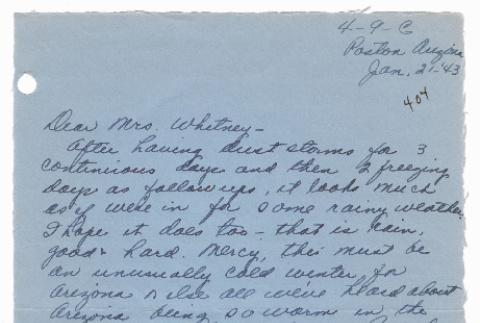 4-9-C
Poston Arizona
Jan. 21-'43
404
Dear Mrs. Whitney-
After having dust storms for 3
continuous days and then 2 freezing
days as follow ups, it looks much
as if we're in for some rainy weather.
I hope it does too - that is rain,
good & hard. Mercy, this must be
an unusually cold winter for
Arizona or else all we've heard about
Arizona being so warm in the